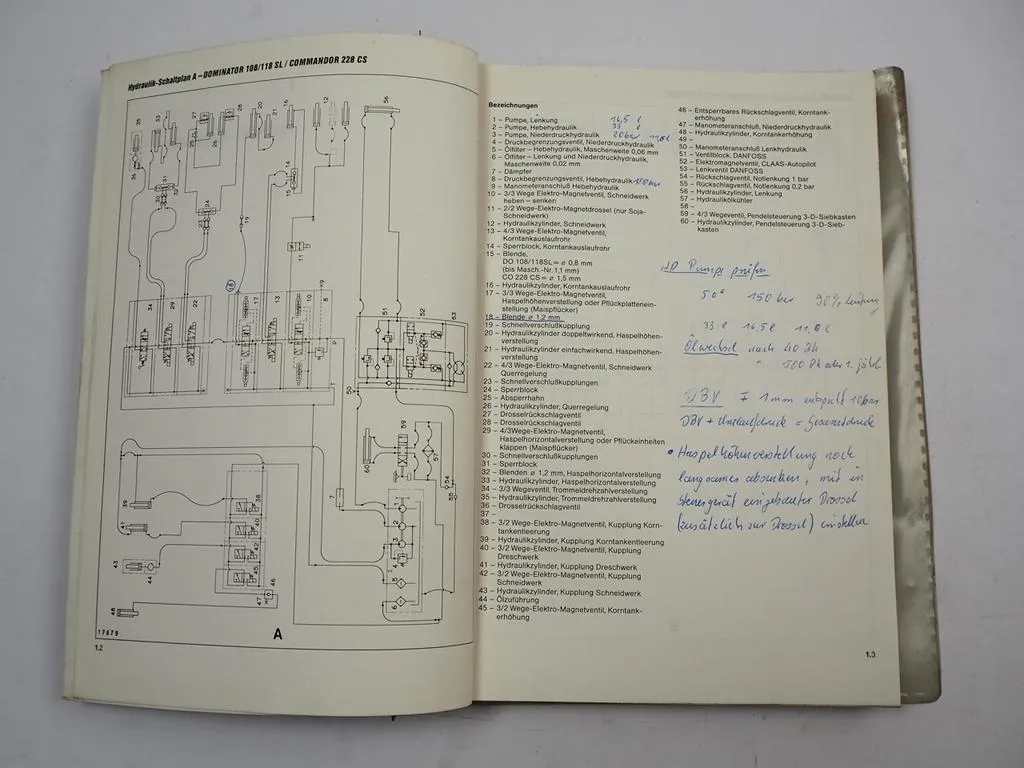 Hydraulik-Schaltplan A – DOMINATOR 108/118 SL / COMMANDOR 228 CS
A
17679
1.2
Bezeichnungen
1 – Pumpe, Lenkung 16,5 l
2 – Pumpe, Hebehydraulik 33 l
3 – Pumpe, Niederdruckhydraulik 20bar 11,0 l
4 – Druckbegrenzungsventil, Niederdruckhydraulik
5 – Ölfilter – Hebehydraulik, Maschenweite 0,06 mm
6 – Ölfilter – Lenkung und Niederdruckhydraulik,
Maschenweite 0,02 mm
7 – Dämpfer
8 – Druckbegrenzungsventil, Hebehydraulik 180 bar
9 – Manometeranschluß Hebehydraulik
10 – 3/3 Wege Elektro-Magnetventil, Schneidwerk
heben – senken
11 – 2/2 Wege-Elektro-Magnetdrossel (nur Soja-
Schneidwerk)
12 – Hydraulikzylinder, Schneidwerk
13 – 4/3 Wege-Elektro-Magnetventil,
Korntankauslaufrohr
14 – Sperrblock, Korntankauslaufrohr
15 – Blende,
DO 108/118SL = ø 0,8 mm
(bis Masch.-Nr. 1,1 mm)
CO 228 CS = ø 1,5 mm
16 – Hydraulikzylinder, Korntankauslaufrohr
17 – 3/3 Wege-Elektro-Magnetventil,
Haspelhöhenverstellung oder Pflückplattenein-
stellung (Maispflücker)
18 – Blende ø 1,2 mm
19 – Schnellverschlußkupplung
20 – Hydraulikzylinder doppeltwirkend, Haspelhöhen-
verstellung
21 – Hydraulikzylinder einfachwirkend, Haspelhöhen-
verstellung
22 – 4/3 Wege-Elektro-Magnetventil, Schneidwerk
Querregelung
23 – Schnellverschlußkupplungen
24 – Sperrblock
25 – Absperrhahn
26 – Hydraulikzylinder, Querregelung
27 – Drosselrückschlagventil
28 – Drosselrückschlagventil
29 – 4/3Wege-Elektro-Magnetventil,
Haspelhorizontalverstellung oder Pflückeinheiten
klappen (Maispflücker)
30 – Schnellverschlußkupplungen
31 – Sperrblock
32 – Blenden ø 1,2 mm, Haspelhorizontalverstellung
33 – Hydraulikzylinder, Haspelhorizontalverstellung
34 – 3/3 Wegeventil, Trommeldrehzahlverstellung
35 – Hydraulikzylinder, Trommeldrehzahlverstellung
36 – Drosselrückschlagventil
37 –
38 – 3/2 Wege-Elektro-Magnetventil, Kupplung Korn-
tankentleerung
39 – Hydraulikzylinder, Kupplung Korntankentleerung
40 – 3/2 Wege-Elektro-Magnetventil, Kupplung
Dreschwerk
41 – Hydraulikzylinder, Kupplung Dreschwerk
42 – 3/2 Wege-Elektro-Magnetventil, Kupplung
Schneidwerk
43 – Hydraulikzylinder, Kupplung Schneidwerk
44 – Ölzuführung
45 – 3/2 Wege-Elektro-Magnetventil, Korntank-
erhöhung
46 – Entsperrbares Rückschlagventil, Korntank-
erhöhung
47 – Manometeranschluß, Niederdruckhydraulik
48 – Hydraulikzylinder, Korntankerhöhung
49 –
50 – Manometeranschluß Lenkhydraulik
51 – Ventilblock, DANFOSS
52 – Elektromagnetventil, CLAAS-Autopilot
53 – Lenkventil DANFOSS
54 – Rückschlagventil, Notlenkung 1 bar
55 – Rückschlagventil, Notlenkung 0,2 bar
56 – Hydraulikzylinder, Lenkung
57 – Hydraulikölkühler
58 –
59 – 4/3 Wegeventil, Pendelsteuerung 3-D-Siebkasten
60 – Hydraulikzylinder, Pendelsteuerung 3-D-Sieb-
kasten
HD Pumpe prüfen
50° 150 bar 90% Leistung
33 l 16,5 l 11,0 l
Ölwechsel nach 40 Bh
" 500 Bh oder 1. jährl
DBV 1mm entspricht 10bar
DBV + Umlaufdruck = Gesamtdruck
• Haspelhöhenverstellung noch
langsamer absenken, mit in
Steuergerät eingebauter Drossel
(zusätzlich zur Drossel) einstellen
1.3